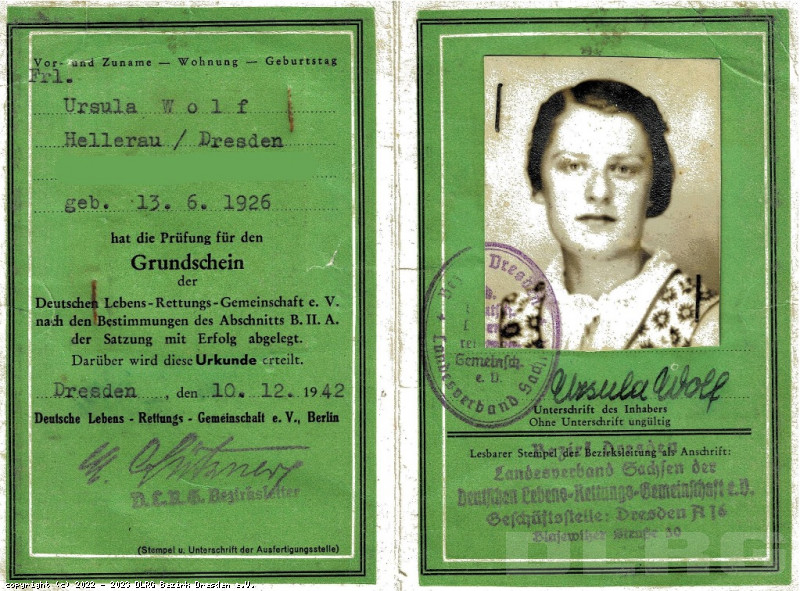 Vor- und Zuname — Wohnung — Geburtstag
Frl.
Ursula Wolf
Hellerau / Dresden
geb. 13. 6. 1926
hat die Prüfung für den
Grundschein
der
Deutschen Lebens-Rettungs-Gemeinschaft e. V.
nach den Bestimmungen des Abschnitts B. II. A.
der Satzung mit Erfolg abgelegt.
Darüber wird diese Urkunde erteilt.
Dresden, den 10. 12. 1942
Deutsche Lebens - Rettungs - Gemeinschaft e. V., Berlin
D.L.R.G. Bezirksleiter
(Stempel u. Unterschrift der Ausfertigungsstelle)
Dresden
Gemeinsch.
e. V.
Landesverband Sachsen
Ursula Wolf
Unterschrift des Inhabers
Ohne Unterschrift ungültig
Lesbarer Stempel der Bezirksleitung als Anschrift:
Bezirk Dresden
Landesverband Sachsen der
Deutschen Lebens-Rettungs-Gemeinschaft e.V.
Geschäftsstelle: Dresden A 16
Blasewitzer Straße 30
DLRG
copyright (c) 2022 - 2023 DLRG Bezirk Dresden e.V.